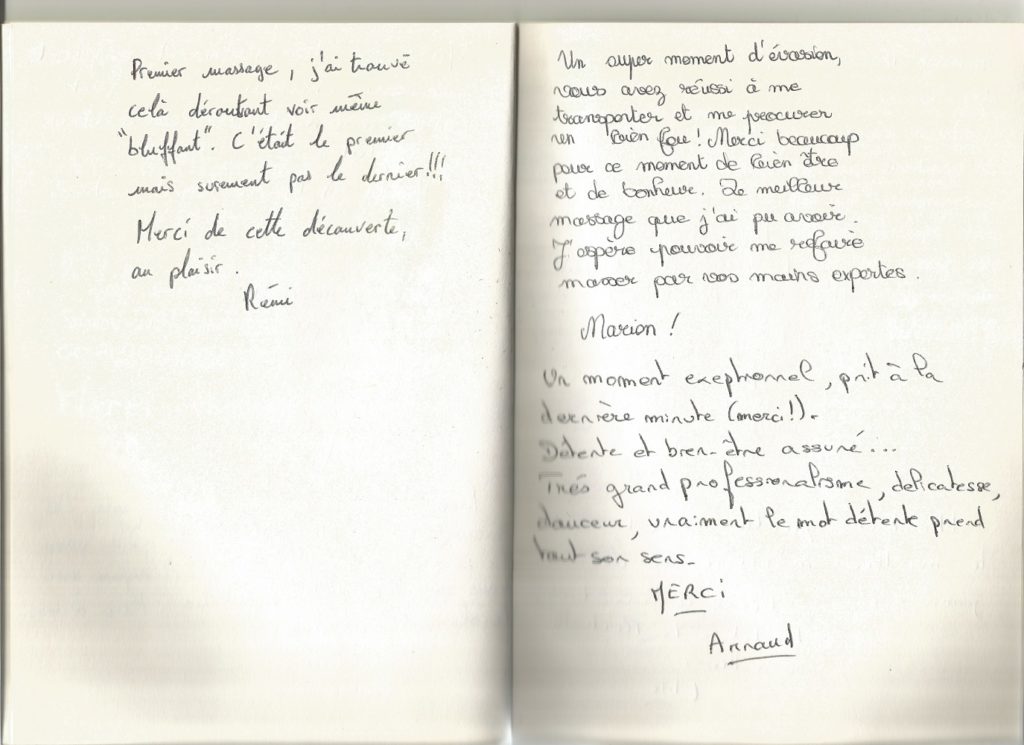 Premier massage, j'ai trouvé
celà déroutant voir même
"bluffant". C'était le premier
mais surement pas le dernier!!!
Merci de cette découverte,
au plaisir.
Rémi
Un super moment d'évasion,
vous avez réussi à me
transporter et me procurer
un bien fou! Merci beaucoup
pour ce moment de bien être
et de bonheur. Le meilleur
massage que j'ai pu avoir.
J'espère pouvoir me refaire
masser par vos mains expertes.
Marion!
Un moment exeptionnel, prit à la
dernière minute (merci!).
Détente et bien-être assuré...
Très grand professionalisme, délicatesse,
douceur, vraiment le mot détente prend
tout son sens.
MERCi
Arnaud